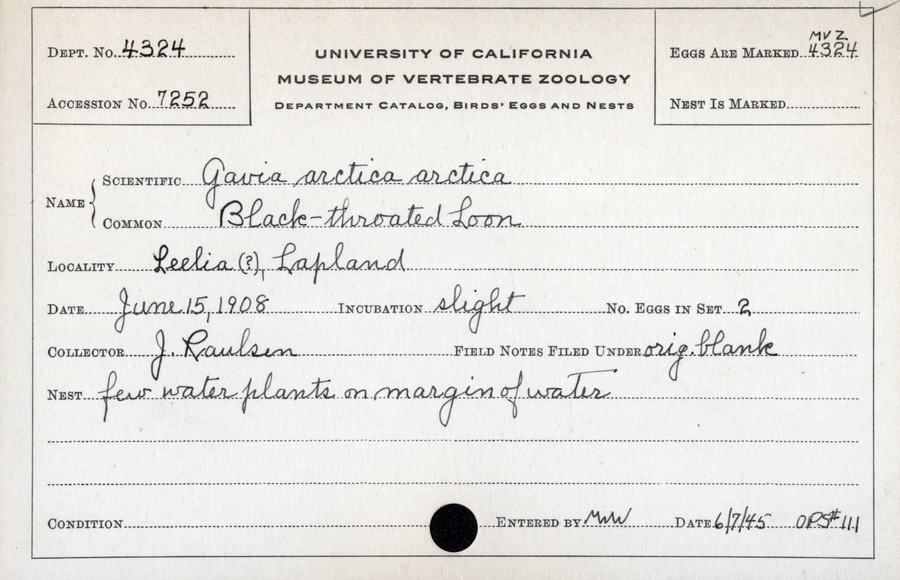 DEPT. No. 4324
ACCESSION No. 7252
UNIVERSITY OF CALIFORNIA
MUSEUM OF VERTEBRATE ZOOLOGY
DEPARTMENT CATALOG, BIRDS' EGGS AND NESTS
MVZ
EGGS ARE MARKED 4324
NEST IS MARKED
NAME
SCIENTIFIC Gavia arctica arctica
COMMON Black-throated Loon
LOCALITY Leelia (?), Lapland
DATE June 15, 1908 INCUBATION slight NO. EGGS IN SET 2
COLLECTOR J. Raulsen FIELD NOTES FILED UNDER orig. blank
NEST few water plants on margin of water
CONDITION ENTERED BY DATE 6/7/45 OPS# 111